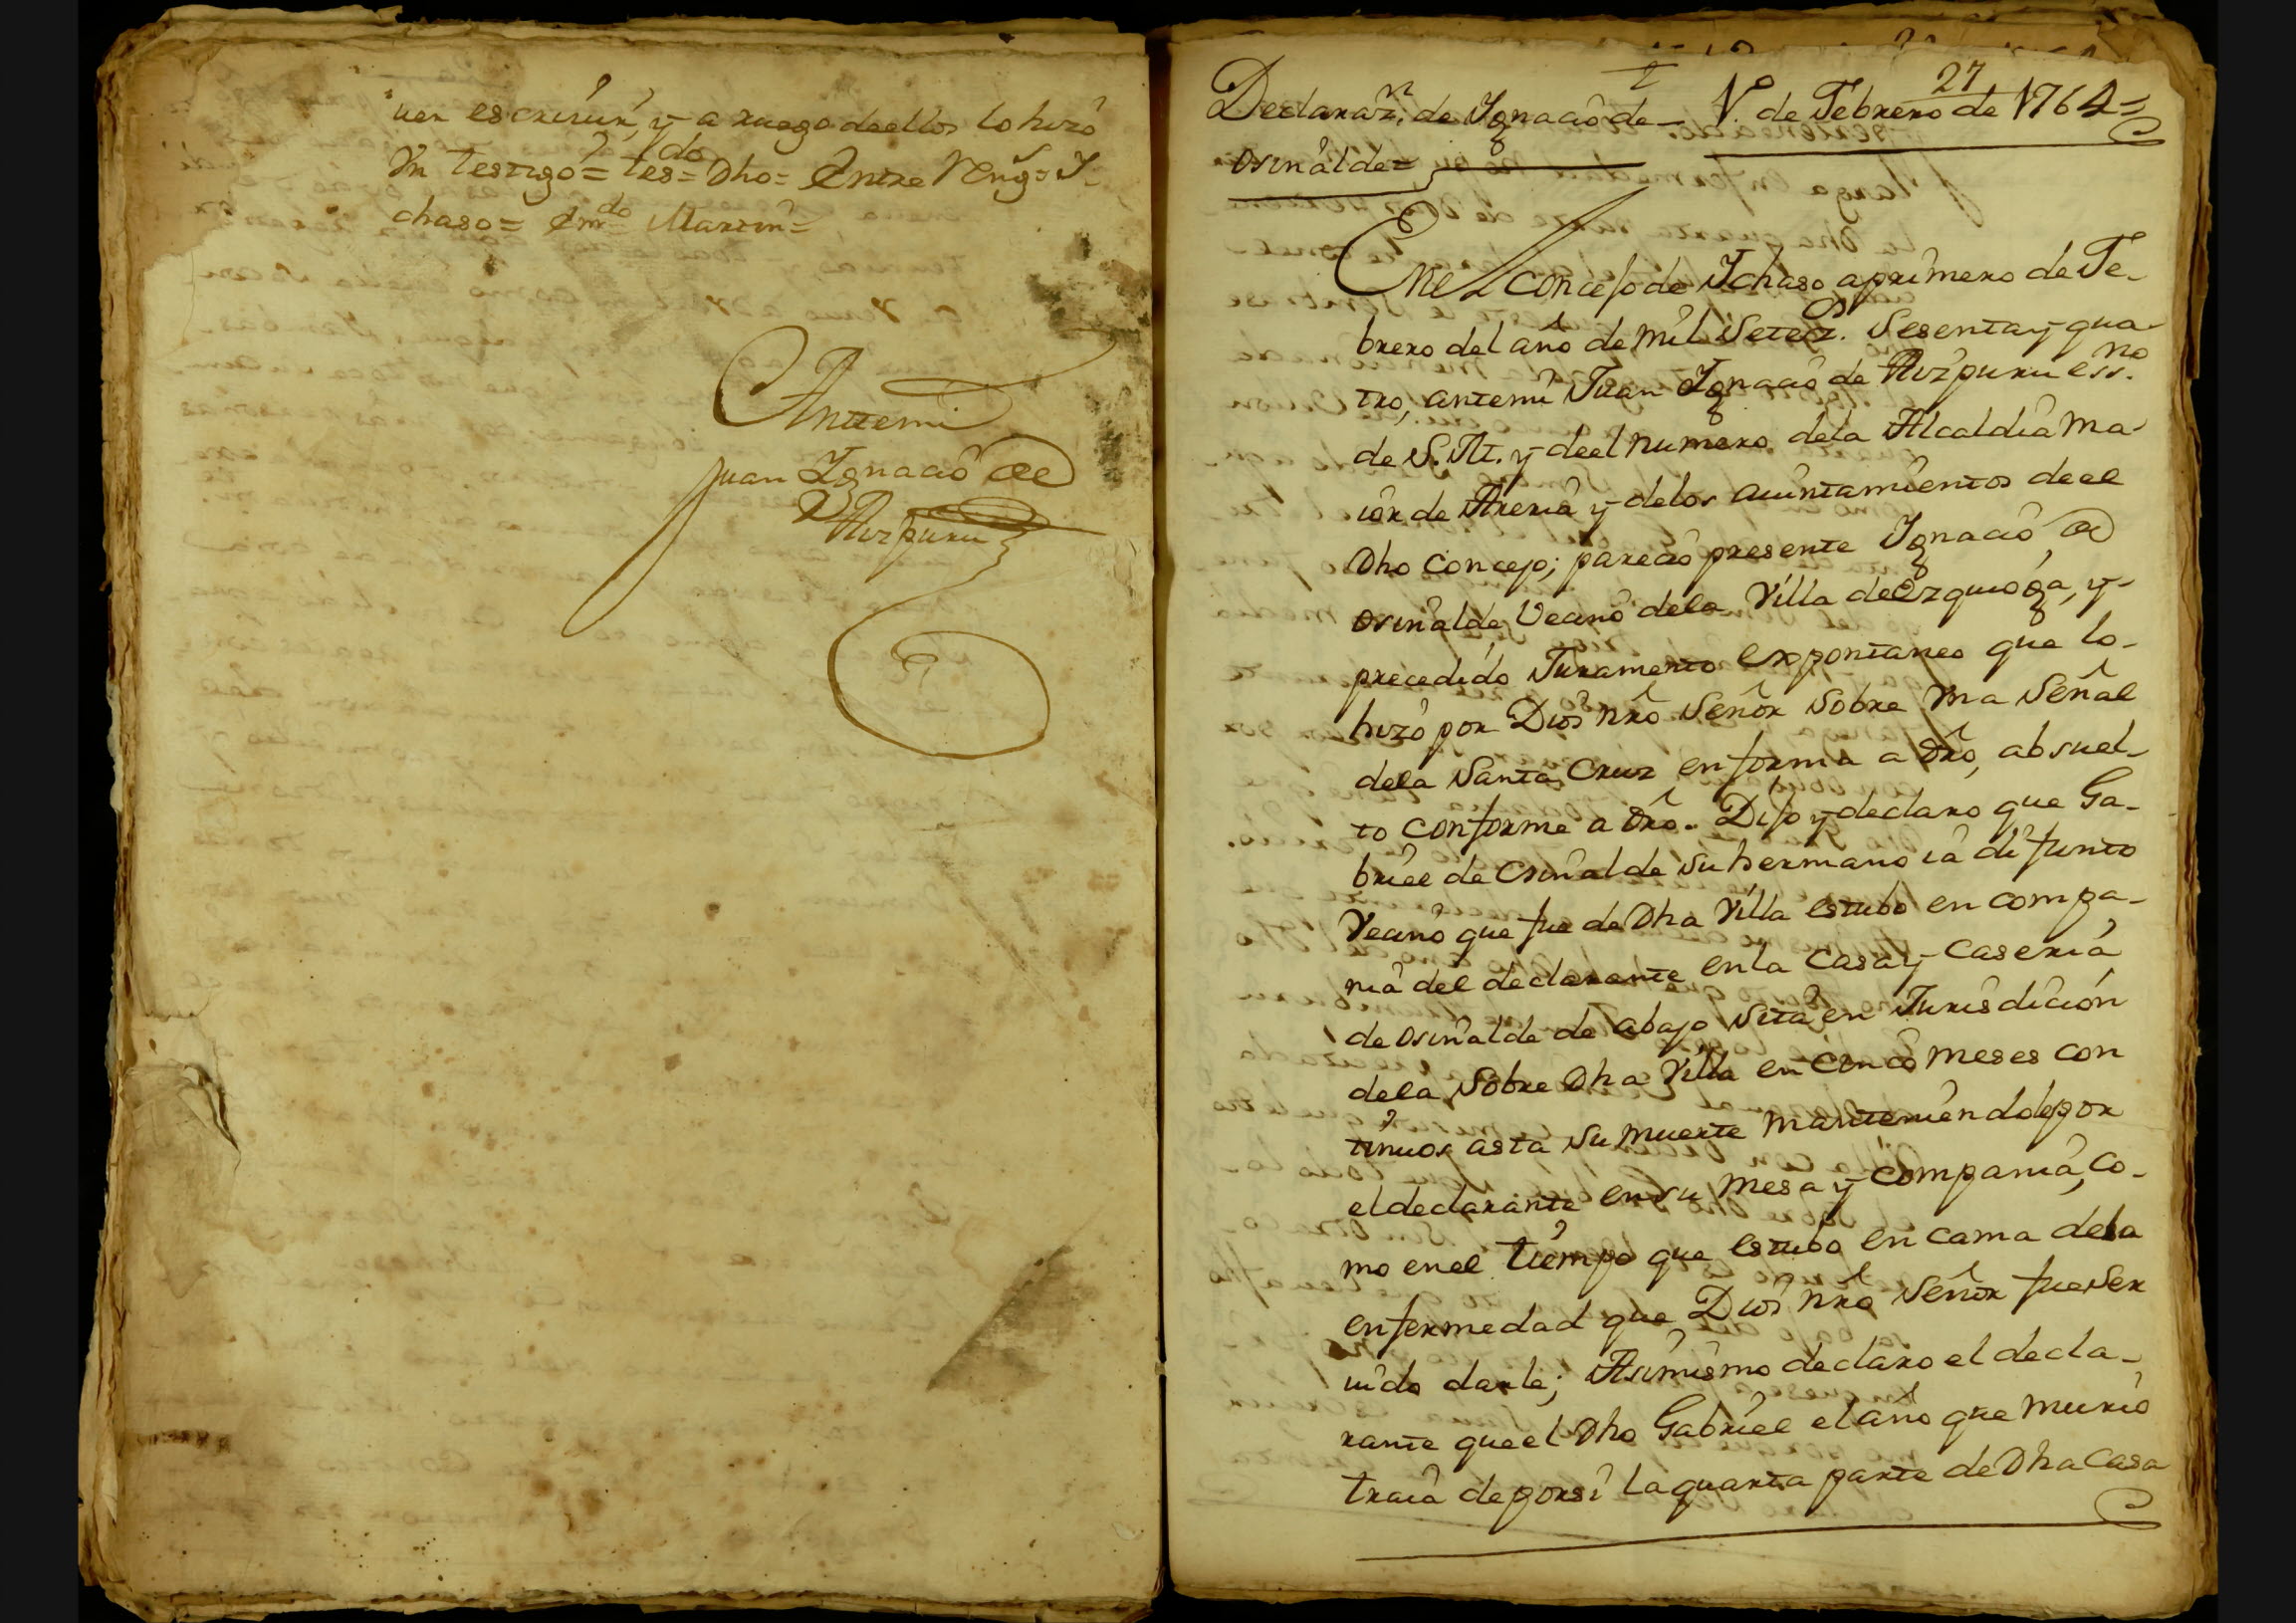 uer escriuir, y a ruego de ellos lo hizo
Un testigo = tesdo = Dho = Entre Reng.s Y-
chaso = Emdo = Martin =
Anttemi
Juan Ignacio de
Aizpuru
27
1
Declarazn. de Ignacio de - V. de Febrero de 1764 =
Osinalde =
En el Concejo de Ychaso a primero de Fe-
brero del año de mil Setecos. Sesenta y qua-
tro, ante mi Juan Ignacio de Aizpuru essno.
de S.M. y de el numero de la Alcaldia ma-
ior de Areria y de los aiuntamientos de el
Dho Concejo; parecio presente Ignacio de
Osinalde, Vecino de la Villa de Ezquioga, y-
precedido Juramento expontaneo que lo-
hizo por Dios nrô Señor sobre Vna Señal
de la Santa Cruz en forma a drô, absuel-
to conforme a drô. Dijo y declaro que Ga-
briel de Osinalde su hermano ia difunto
Vecino que fue de Dha Villa estubo en compa-
nia del declarante en la Casa y Caseria
de Osinalde de abajo sita en Jurisdicion
de la Sobre Dha Villa en Cinco meses con
tinuos asta su muerte manteniendole por
el declarante en su mesa y compania, co-
mo en el tiempo que estubo en cama de la
enfermedad que Dios nrô Señor fue ser
uido darle; Asimismo declaro el decla-
rante que el Dho Gabriel el año que murio
traia de por si la quarta parte de Dha Casa